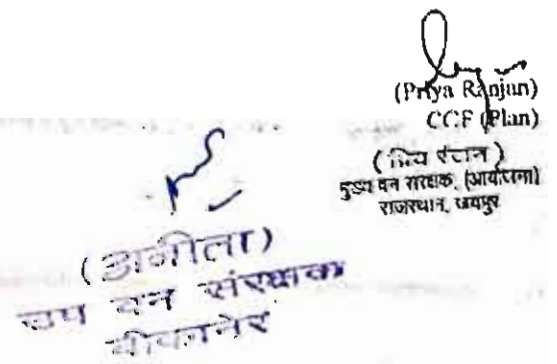 (Priya Ranjan)
CCF (Plan)
(प्रिय रंजन)
मुख्य वन संरक्षक, (आयोजना)
राजस्थान, जयपुर
(अनीता)
उप वन संरक्षक
बीकानेर